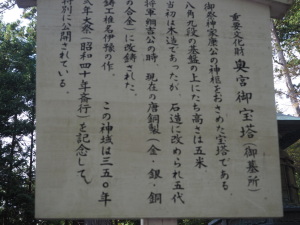 重要文化財 奥宮御宝塔(御墓所)
御祭神家康公の神柩をおさめた宝塔である。
八角五段の基盤の上にたち高さは五米
当初は木造であったが、石造に改められ五代
将軍綱吉公の時、現在の唐銅製(金・銀・銅
の合金)に改鋳された。
鋳工椎名伊豫の作。 この神域は三五〇年
式年大祭(昭和四十年斎行)を記念して、
特別に公開されている。